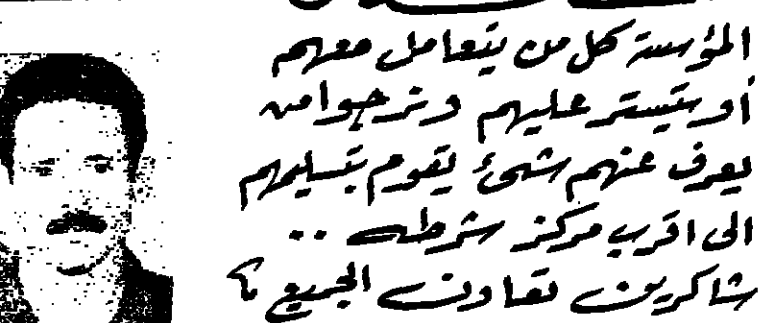 المؤسسة كل من يتعامل معهم
أو يتستر عليهم ونرجوا من
يعرف عنهم شئ يقوم بتسليمهم
الى اقرب مركز شرطه ..
شاكرين تعاون الجميع